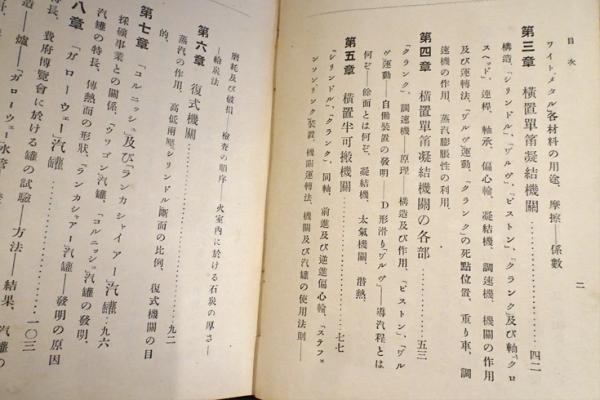 目次
二
ワイト、メタル」各材料の用途、摩擦——係數
第三章 橫置單筩凝結機關…………四二
構造、「シリンドル」、「ワルヴ」、「ピストン」、「クランク」及び軸、「クロ
スヘッド」、連桿、軸承、偏心輪、凝結機、調速機、機關の作用
及び運轉法、「ワルヴ」運動、「クランク」の死點位置、重り車、調
速機の作用、蒸汽膨脹性の利用、
第四章 橫置單筩凝結機關の各部…………五三
「クランク」、調速機——原理——構造及び作用、「ピストン」、「ワル
ヴ」運動——自働裝置の發明——D形滑り「ワルヴ」——導汽程とは
何ぞ——餘面とは何ぞ、凝結機、太氣機關、潛熱、
第五章 橫置半可搬機關…………七七
「シリンドル」、「クランク」、同軸、前進及び逆進偏心輪、「ステフェ
ンソンリンク」裝置、機關運轉法、機關及び汽罐の使用法則——
磨耗及び破損——檢查の順序——火室內に於ける石炭の厚さ——
——輪炭法
第六章 復式機關…………九二
蒸汽の作用、高低兩壓シリンドル斷面の比例、復式機關の目
的、
第七章 「コルニッシュ」及び「ランカシャイアー」汽罐……九六
採礦事業との關係、「ワゴン」汽罐、「コルニッシュ」汽罐の發明、
汽罐の特長、傳熱面の形狀、「ランカシャアー」汽罐——發明の原因
八章 「ガローウェー」汽罐…………一〇三
長、費府博覽會に於ける罐の試驗——方法——結果、汽罐の
造——爐——「ガローウェー」水管